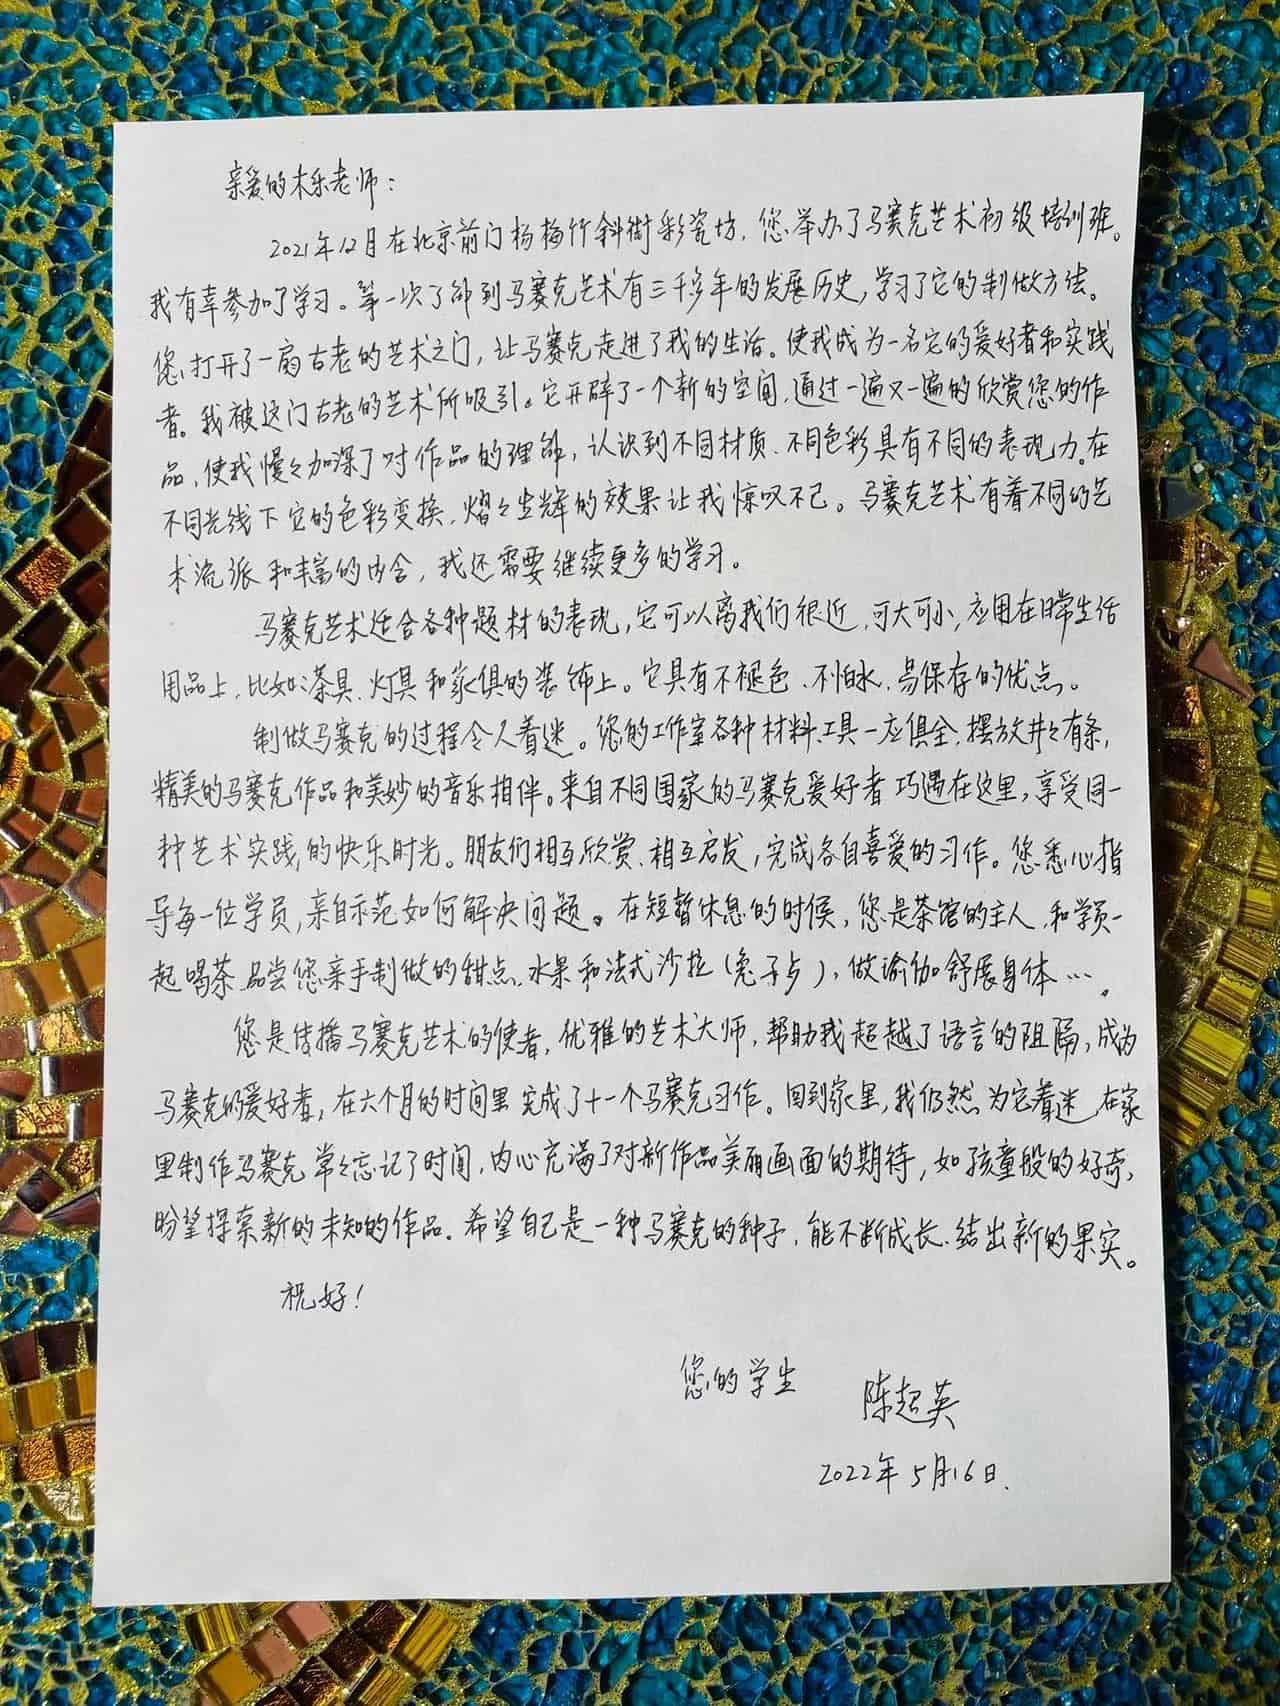 亲爱的木乐老师：
2021年12月在北京前门杨梅竹斜街彩瓷坊，您举办了马赛克艺术初级培训班。
我有幸参加了学习。第一次了解到马赛克艺术有三千多年的发展历史，学习了它的制做方法。
您打开了一扇古老的艺术之门，让马赛克走进了我的生活。使我成为一名它的爱好者和实践
者。我被这门古老的艺术所吸引。它开辟了一个新的空间，通过一遍又一遍的欣赏您的作
品，使我慢々加深了对作品的理解，认识到不同材质、不同色彩具有不同的表现力。在
不同光线下它的色彩变换，熠々生辉的效果让我惊叹不已。马赛克艺术有着不同的艺
术流派和丰富的内含，我还需要继续更多的学习。
马赛克艺术适合各种题材的表现，它可以离我们很近，可大可小，应用在日常生活
用品上，比如：茶具、灯具和家俱的装饰上。它具有不褪色、不怕水、易保存的优点。
制做马赛克的过程令人着迷。您的工作室各种材料、工具一应俱全，摆放井々有条，
精美的马赛克作品和美妙的音乐相伴。来自不同国家的马赛克爱好者巧遇在这里，享受同一
种艺术实践的快乐时光。朋友们相互欣赏、相互启发，完成各自喜爱的习作。您悉心指
导每一位学员，亲自示范如何解决问题。在短暂休息的时候，您是茶馆的主人，和学员一
起喝茶、品尝您亲手制做的甜点、水果和法式沙拉（兔子与），做瑜伽舒展身体…。
您是传播马赛克艺术的使者，优雅的艺术大师，帮助我超越了语言的阻隔，成为
马赛克的爱好者，在六个月的时间里完成了十一个马赛克习作。回到家里，我仍然为它着迷，在家
里制作马赛克常々忘记了时间，内心充满了对新作品美丽画面的期待，如孩童般的好奇，
盼望探索新的未知的作品。希望自己是一种马赛克的种子，能不断成长、结出新的果实。
祝好！
您的学生 陈起英
2022年5月16日.